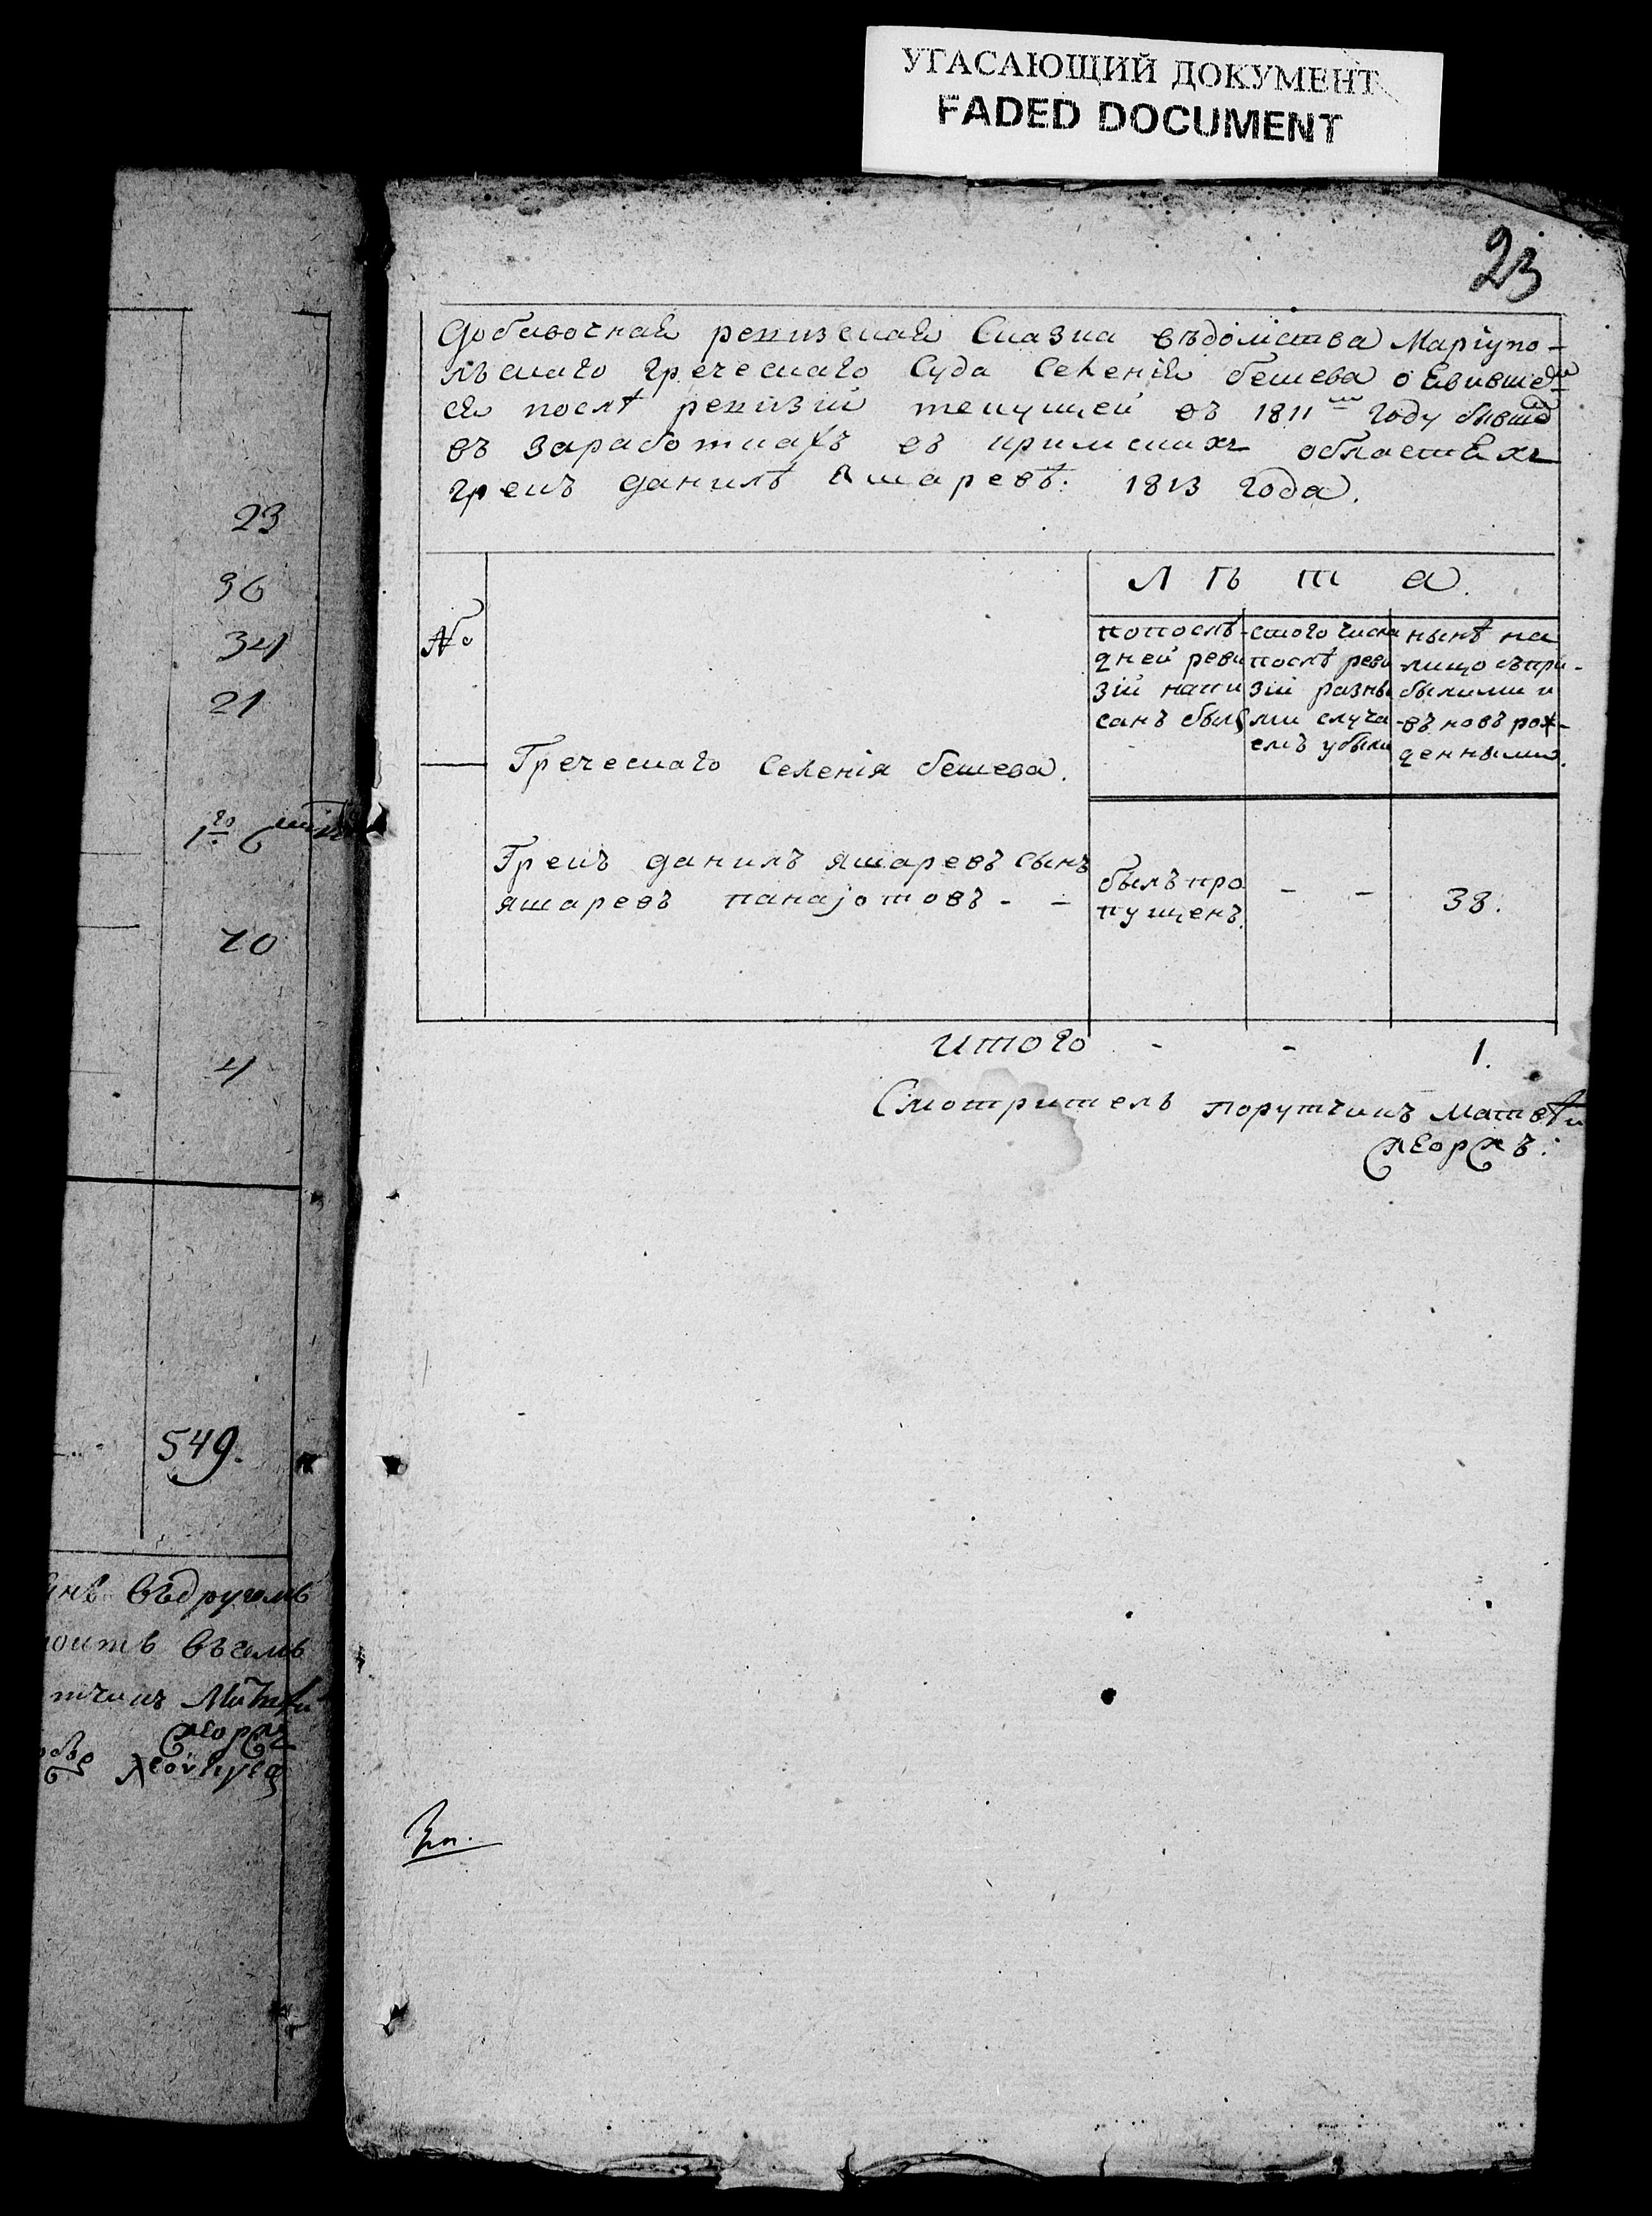 УГАСАЮЩИЙ ДОКУМЕНТ
FADED DOCUMENT
23
Добавочная ревизская Сказка вѣдомства Маріупо-
льскаго греческаго Суда Селенія бешева о явивше-
ся послѣ ревизіи текущей въ 1811 году бывш
въ заработкахъ въ кримскихъ областяхъ
грекъ данилѣ Яшаревѣ. 1813 года.
Л ѣ т а.
№
попослѣ-
дней реви
зіи напи
санъ былъ
стого числа
послѣ реви
зіи разны
ми случа
емъ убыли
нынѣ на
лицо съпри-
былими и
въ новъ рож-
денными.
Греческаго Селенія бешева.
Грекъ данилъ яшаревъ сынъ
яшаревъ панајотовъ - -
былъ про
пущенъ.
- -
38.
итого - - 1.
Смотритель порутчикъ Матвѣи
23
36
34
21
1го
10
4
549.
въдругомъ
въчемъ
тчикъ Матвѣи